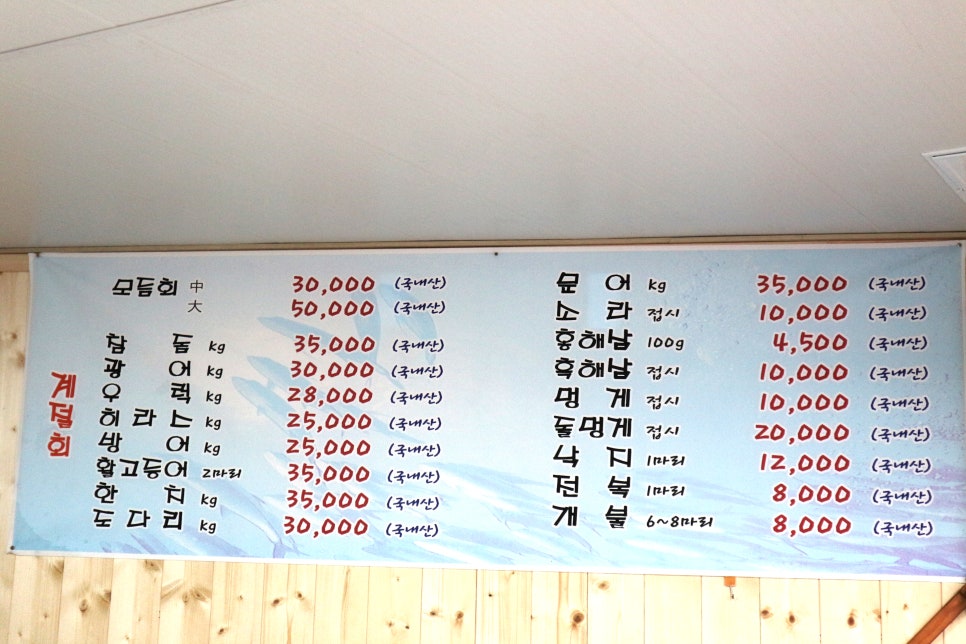 모듬회 中 30,000 (국내산)
大 50,000 (국내산)
계절회
참돔 kg 35,000 (국내산)
광어 kg 30,000 (국내산)
우럭 kg 28,000 (국내산)
히라스 kg 25,000 (국내산)
방어 kg 25,000 (국내산)
활고등어 2마리 35,000 (국내산)
한치 kg 35,000 (국내산)
도다리 kg 30,000 (국내산)
문어 kg 35,000 (국내산)
소라 접시 10,000 (국내산)
홍해삼 100g 4,500 (국내산)
흑해삼 접시 10,000 (국내산)
멍게 접시 10,000 (국내산)
돌멍게 접시 20,000 (국내산)
낙지 1마리 12,000 (국내산)
전복 1마리 8,000 (국내산)
개불 6~8마리 8,000 (국내산)